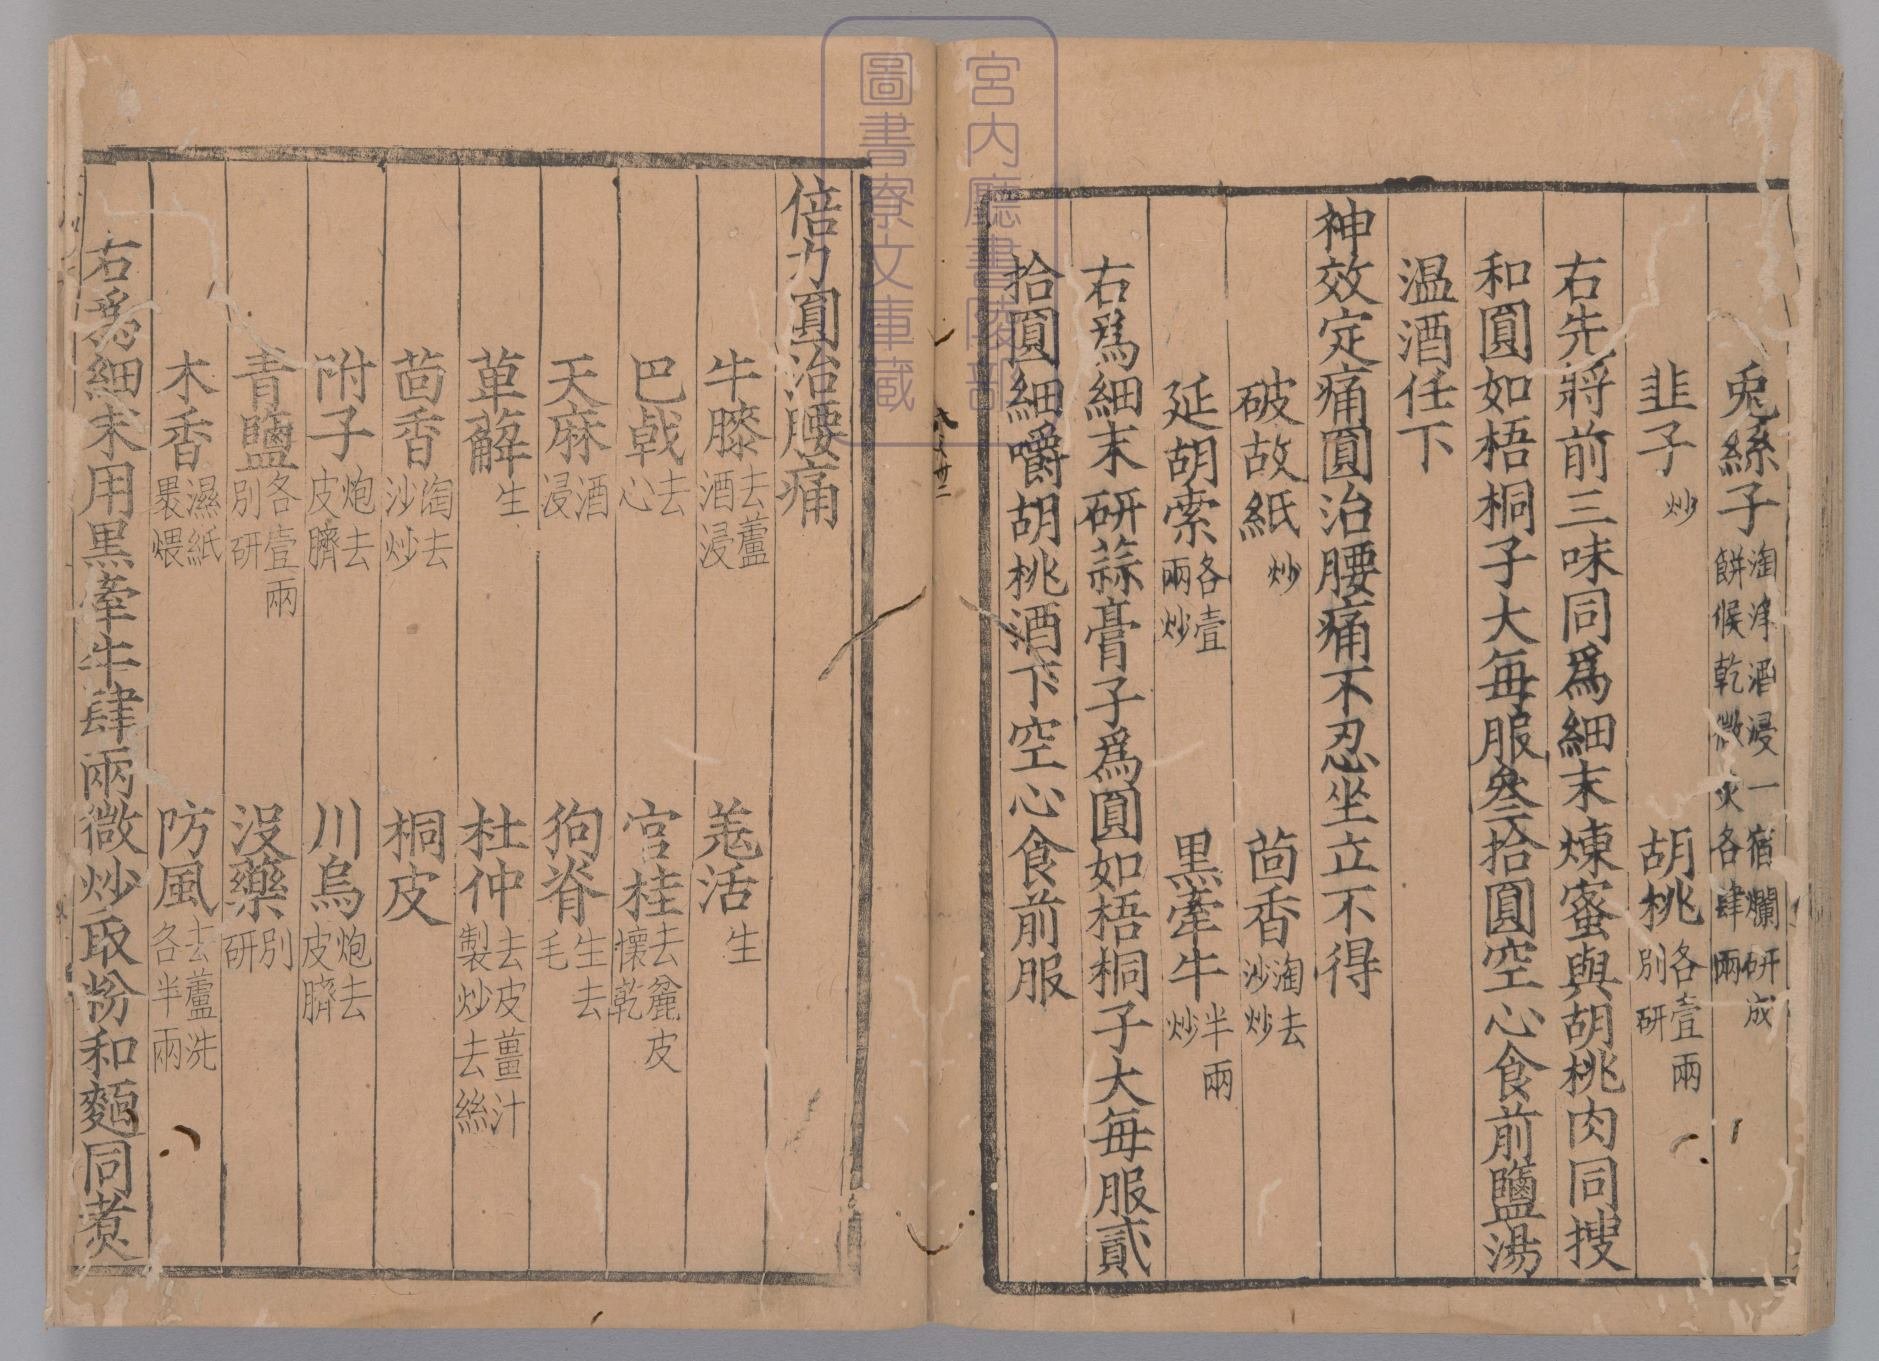 兎絲子淘淨酒浸一宿爛研成餅候乾微火各肆兩
韭子炒　胡桃各壹兩別研
右先將前三味同爲細末煉蜜與胡桃肉同搜
和圓如梧桐子大每服叁拾圓空心食前鹽湯
温酒任下
神效定痛圓治腰痛不忍坐立不得
破故紙炒　茴香淘去沙炒
延胡索各壹兩炒　黒牽牛半兩炒
右爲細末研蒜膏子爲圓如梧桐子大每服貳
拾圓細嚼胡桃酒下空心食前服
倍力圓治腰痛
牛膝去蘆酒浸　羌活生
巴戟去心　官桂去麄皮懷乾
天麻酒浸　狗脊生去毛
萆薢生　杜仲去皮薑汁製炒去絲
茴香淘去沙炒　桐皮
附子炮去皮臍　川烏炮去皮臍
青鹽各壹兩別研　没藥別研
木香濕紙裹煨　防風去蘆洗各半兩
右爲細末用黒牽牛肆兩微炒取粉和麵同煮
宮内廳書陵部
圖書寮文庫蔵